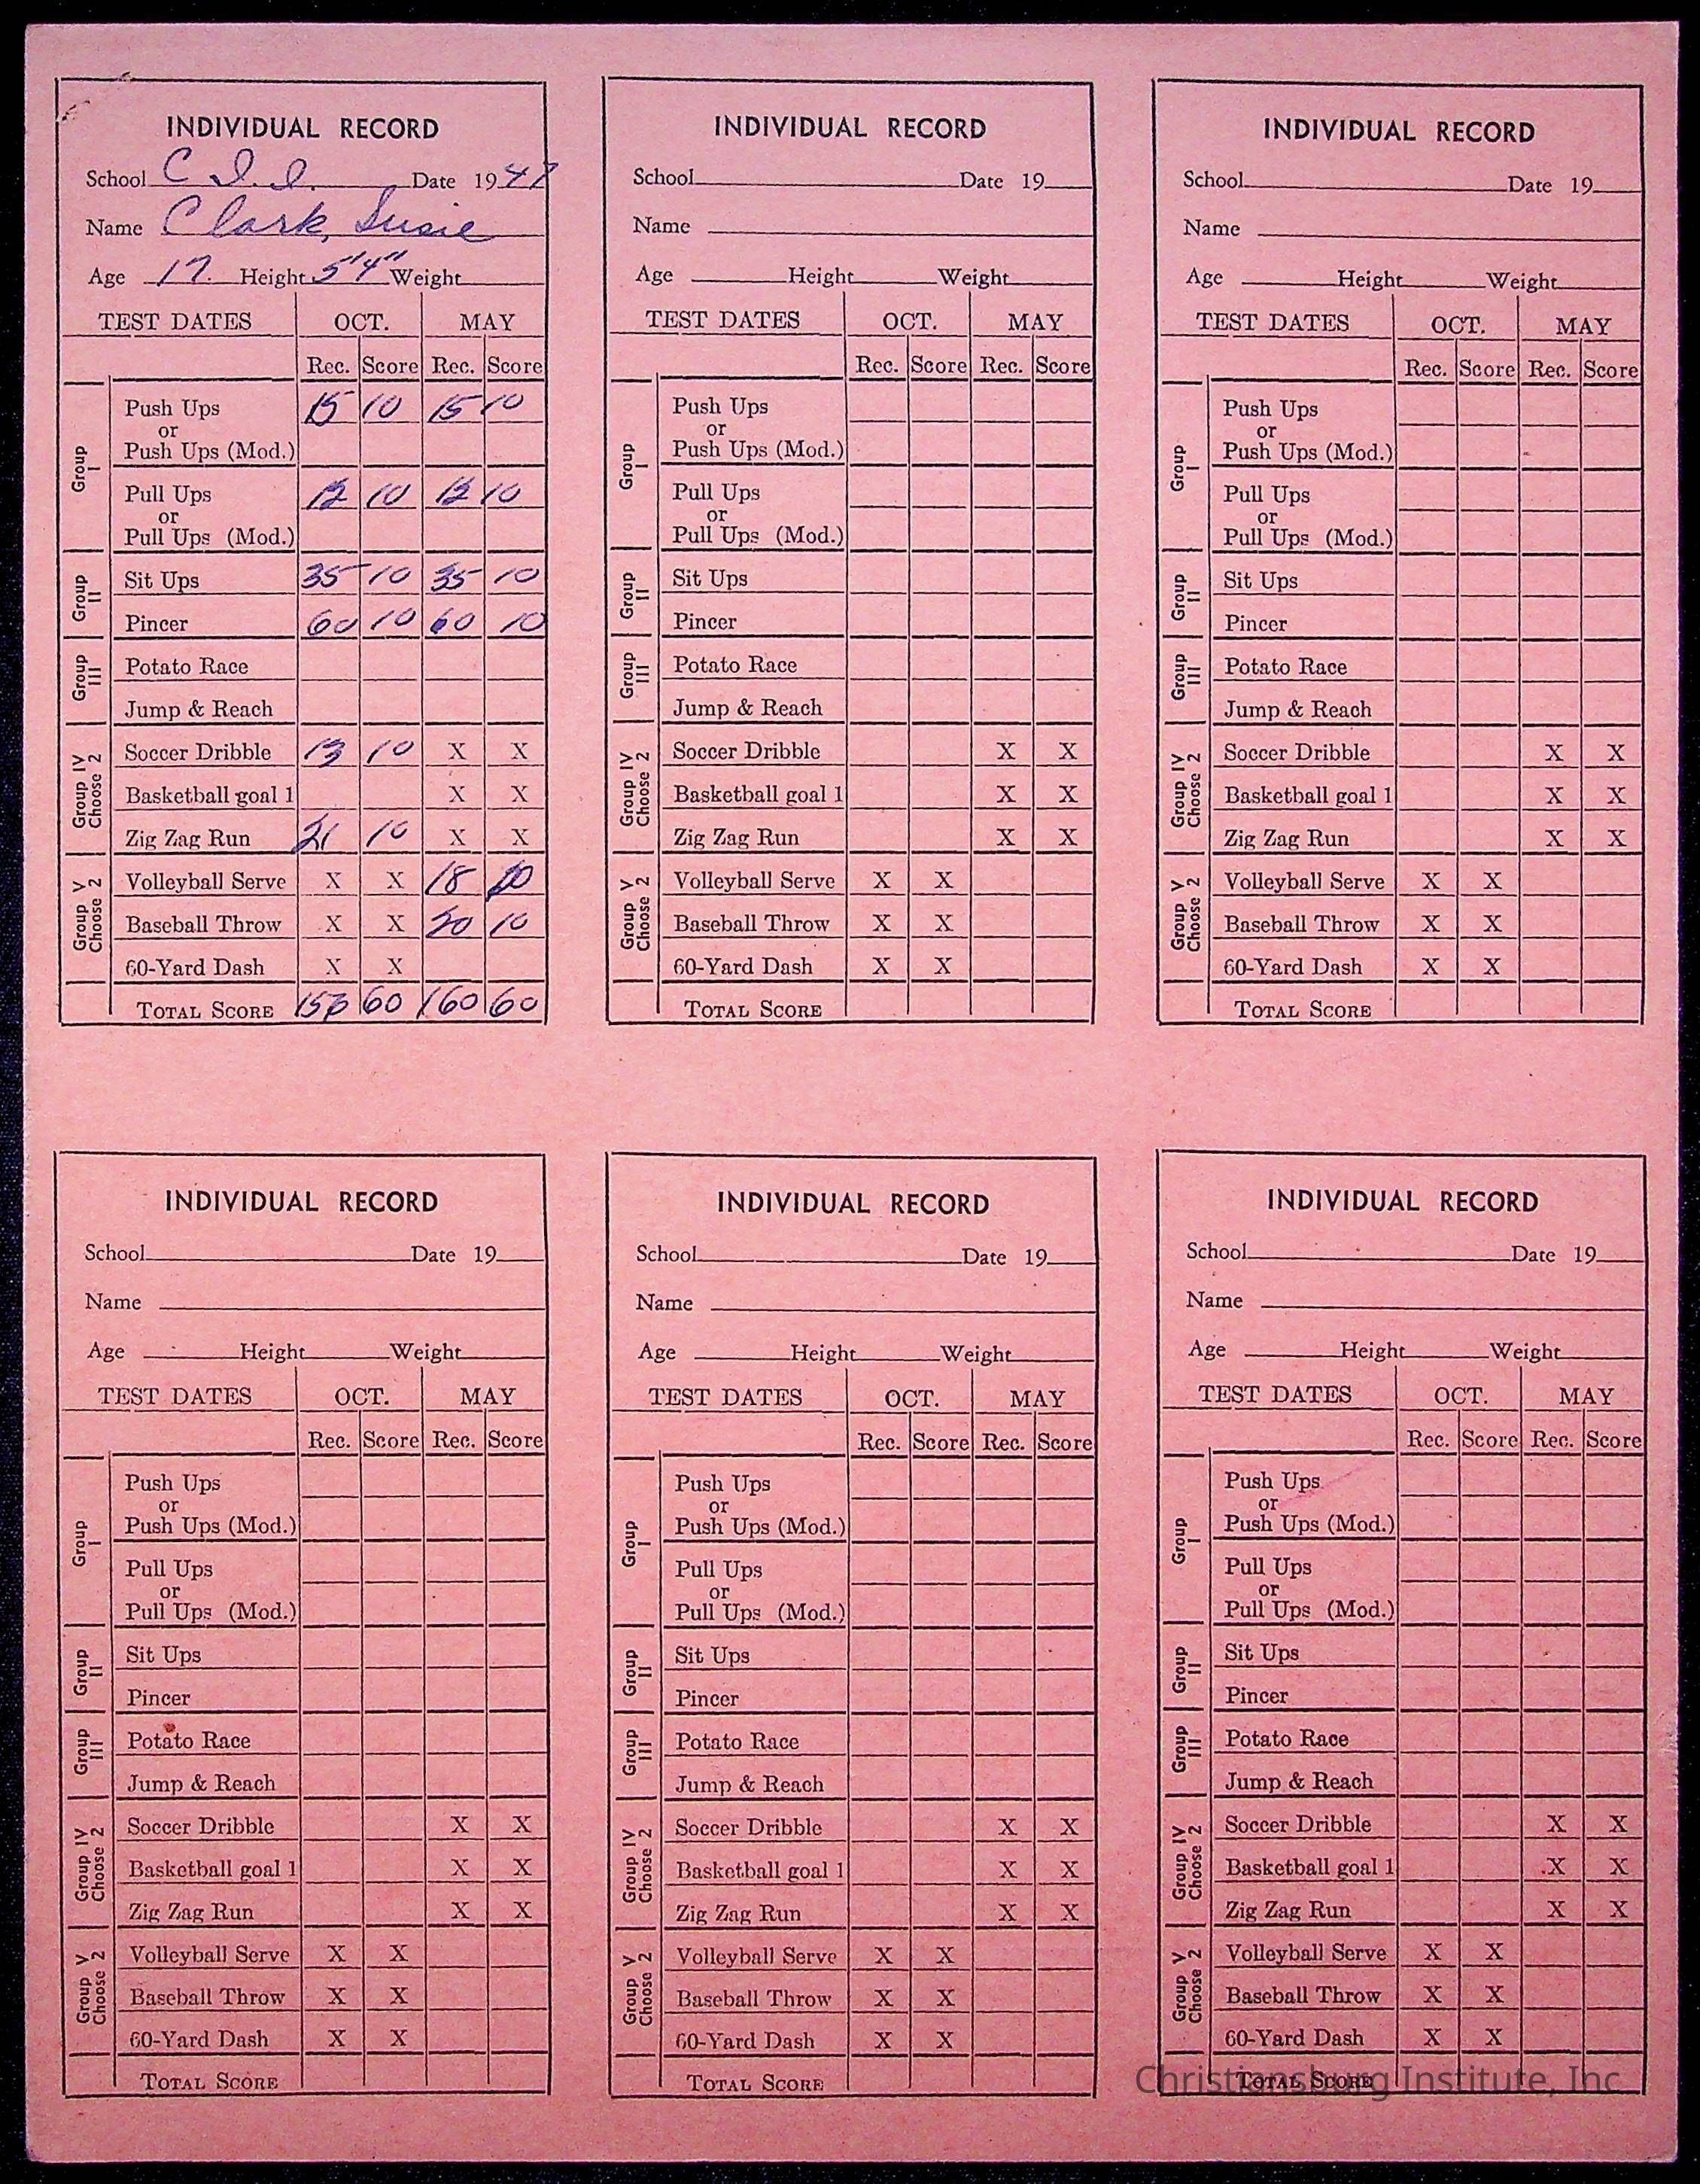 INDIVIDUAL RECORD
School C I. I. Date 1947
Name Clark, Susie
Age 17. Height 5'4" Weight
TEST DATES OCT. MAY
Rec. Score Rec. Score
Group I
Push Ups 15 10 15 10
or
Push Ups (Mod.)
Pull Ups 12 10 12 10
or
Pull Ups (Mod.)
Group II
Sit Ups 35 10 35 10
Pincer 60 10 60 10
Group III
Potato Race
Jump & Reach
Group IV Choose 2
Soccer Dribble 13 10 X X
Basketball goal 1 X X
Zig Zag Run 21 10 X X
Group V Choose 2
Volleyball Serve X X 18 10
Baseball Throw X X 20 10
60-Yard Dash X X
TOTAL SCORE 60 160 60
INDIVIDUAL RECORD
School Date 19
Name
Age Height Weight
TEST DATES OCT. MAY
Rec. Score Rec. Score
Group I
Push Ups
or
Push Ups (Mod.)
Pull Ups
or
Pull Ups (Mod.)
Group II
Sit Ups
Pincer
Group III
Potato Race
Jump & Reach
Group IV Choose 2
Soccer Dribble X X
Basketball goal 1 X X
Zig Zag Run X X
Group V Choose 2
Volleyball Serve X X
Baseball Throw X X
60-Yard Dash X X
TOTAL SCORE
INDIVIDUAL RECORD
School Date 19
Name
Age Height Weight
TEST DATES OCT. MAY
Rec. Score Rec. Score
Group I
Push Ups
or
Push Ups (Mod.)
Pull Ups
or
Pull Ups (Mod.)
Group II
Sit Ups
Pincer
Group III
Potato Race
Jump & Reach
Group IV Choose 2
Soccer Dribble X X
Basketball goal 1 X X
Zig Zag Run X X
Group V Choose 2
Volleyball Serve X X
Baseball Throw X X
60-Yard Dash X X
TOTAL SCORE
INDIVIDUAL RECORD
School Date 19
Name
Age Height Weight
TEST DATES OCT. MAY
Rec. Score Rec. Score
Group I
Push Ups
or
Push Ups (Mod.)
Pull Ups
or
Pull Ups (Mod.)
Group II
Sit Ups
Pincer
Group III
Potato Race
Jump & Reach
Group IV Choose 2
Soccer Dribble X X
Basketball goal 1 X X
Zig Zag Run X X
Group V Choose 2
Volleyball Serve X X
Baseball Throw X X
60-Yard Dash X X
TOTAL SCORE
INDIVIDUAL RECORD
School Date 19
Name
Age Height Weight
TEST DATES OCT. MAY
Rec. Score Rec. Score
Group I
Push Ups
or
Push Ups (Mod.)
Pull Ups
or
Pull Ups (Mod.)
Group II
Sit Ups
Pincer
Group III
Potato Race
Jump & Reach
Group IV Choose 2
Soccer Dribble X X
Basketball goal 1 X X
Zig Zag Run X X
Group V Choose 2
Volleyball Serve X X
Baseball Throw X X
60-Yard Dash X X
TOTAL SCORE
INDIVIDUAL RECORD
School Date 19
Name
Age Height Weight
TEST DATES OCT. MAY
Rec. Score Rec. Score
Group I
Push Ups
or
Push Ups (Mod.)
Pull Ups
or
Pull Ups (Mod.)
Group II
Sit Ups
Pincer
Group III
Potato Race
Jump & Reach
Group IV Choose 2
Soccer Dribble X X
Basketball goal 1 X X
Zig Zag Run X X
Group V Choose 2
Volleyball Serve X X
Baseball Throw X X
60-Yard Dash X X
TOTAL SCORE
Christiansburg Institute, Inc